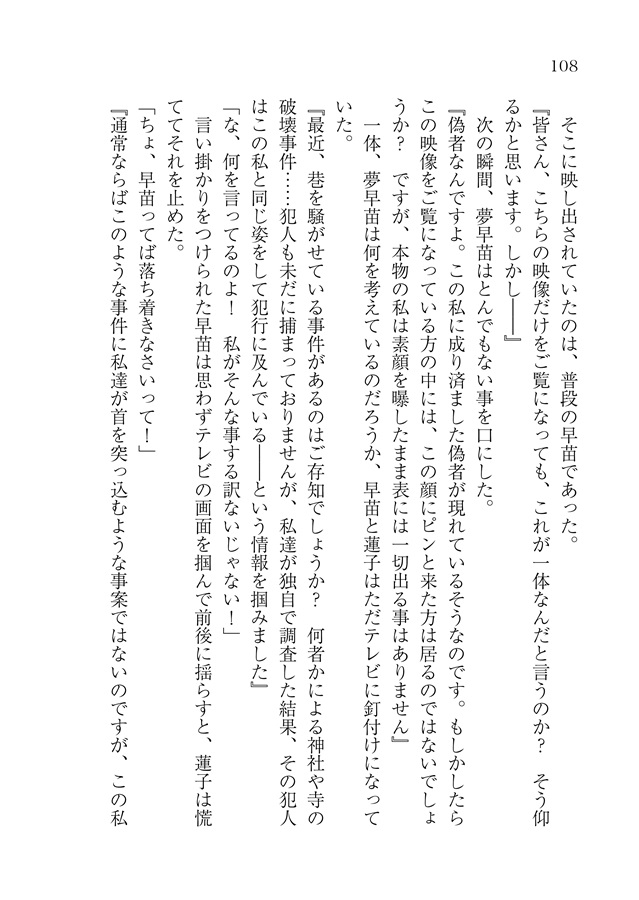 108
そこに映し出されていたのは、普段の早苗であった。
『皆さん、こちらの映像だけをご覧になっても、これが一体なんだと言うのか？　そう仰
るかと思います。しかし――』
次の瞬間、夢早苗はとんでもない事を口にした。
『偽者なんですよ。この私に成り済ました偽者が現れているそうなのです。もしかしたら
この映像をご覧になっている方の中には、この顔にピンと来た方は居るのではないでしょ
うか？　ですが、本物の私は素顔を曝したまま表には一切出る事はありません』
一体、夢早苗は何を考えているのだろうか、早苗と蓮子はただテレビに釘付けになって
いた。
『最近、巷を騒がせている事件があるのはご存知でしょうか？　何者かによる神社や寺の
破壊事件……犯人も未だに捕まっておりませんが、私達が独自で調査した結果、その犯人
はこの私と同じ姿をして犯行に及んでいる――という情報を掴みました』
「な、何を言ってるのよ！　私がそんな事する訳ないじゃない！」
言い掛かりをつけられた早苗は思わずテレビの画面を掴んで前後に揺らすと、蓮子は慌
ててそれを止めた。
「ちょ、早苗ってば落ち着きなさいって！」
『通常ならばこのような事件に私達が首を突っ込むような事案ではないのですが、この私